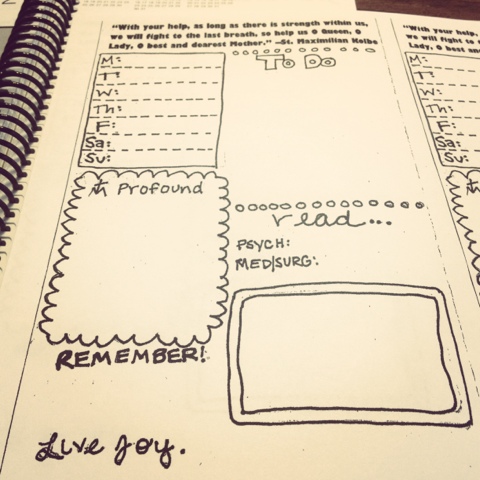 "With your help, as long as there is strength within us,
we will fight to the last breath, so help us O Queen, O
Lady, O best and dearest Mother." —St. Maximilian Kolbe
To Do
M:
T:
W:
Th:
F:
Sa:
Su:
Profound
read...
PSYCH:
MED/SURG:
REMEMBER!
Live Joy.
"With your help,
we will fight to
Lady, O best and
M:
T:
W:
Th:
F:
Sa:
Su: